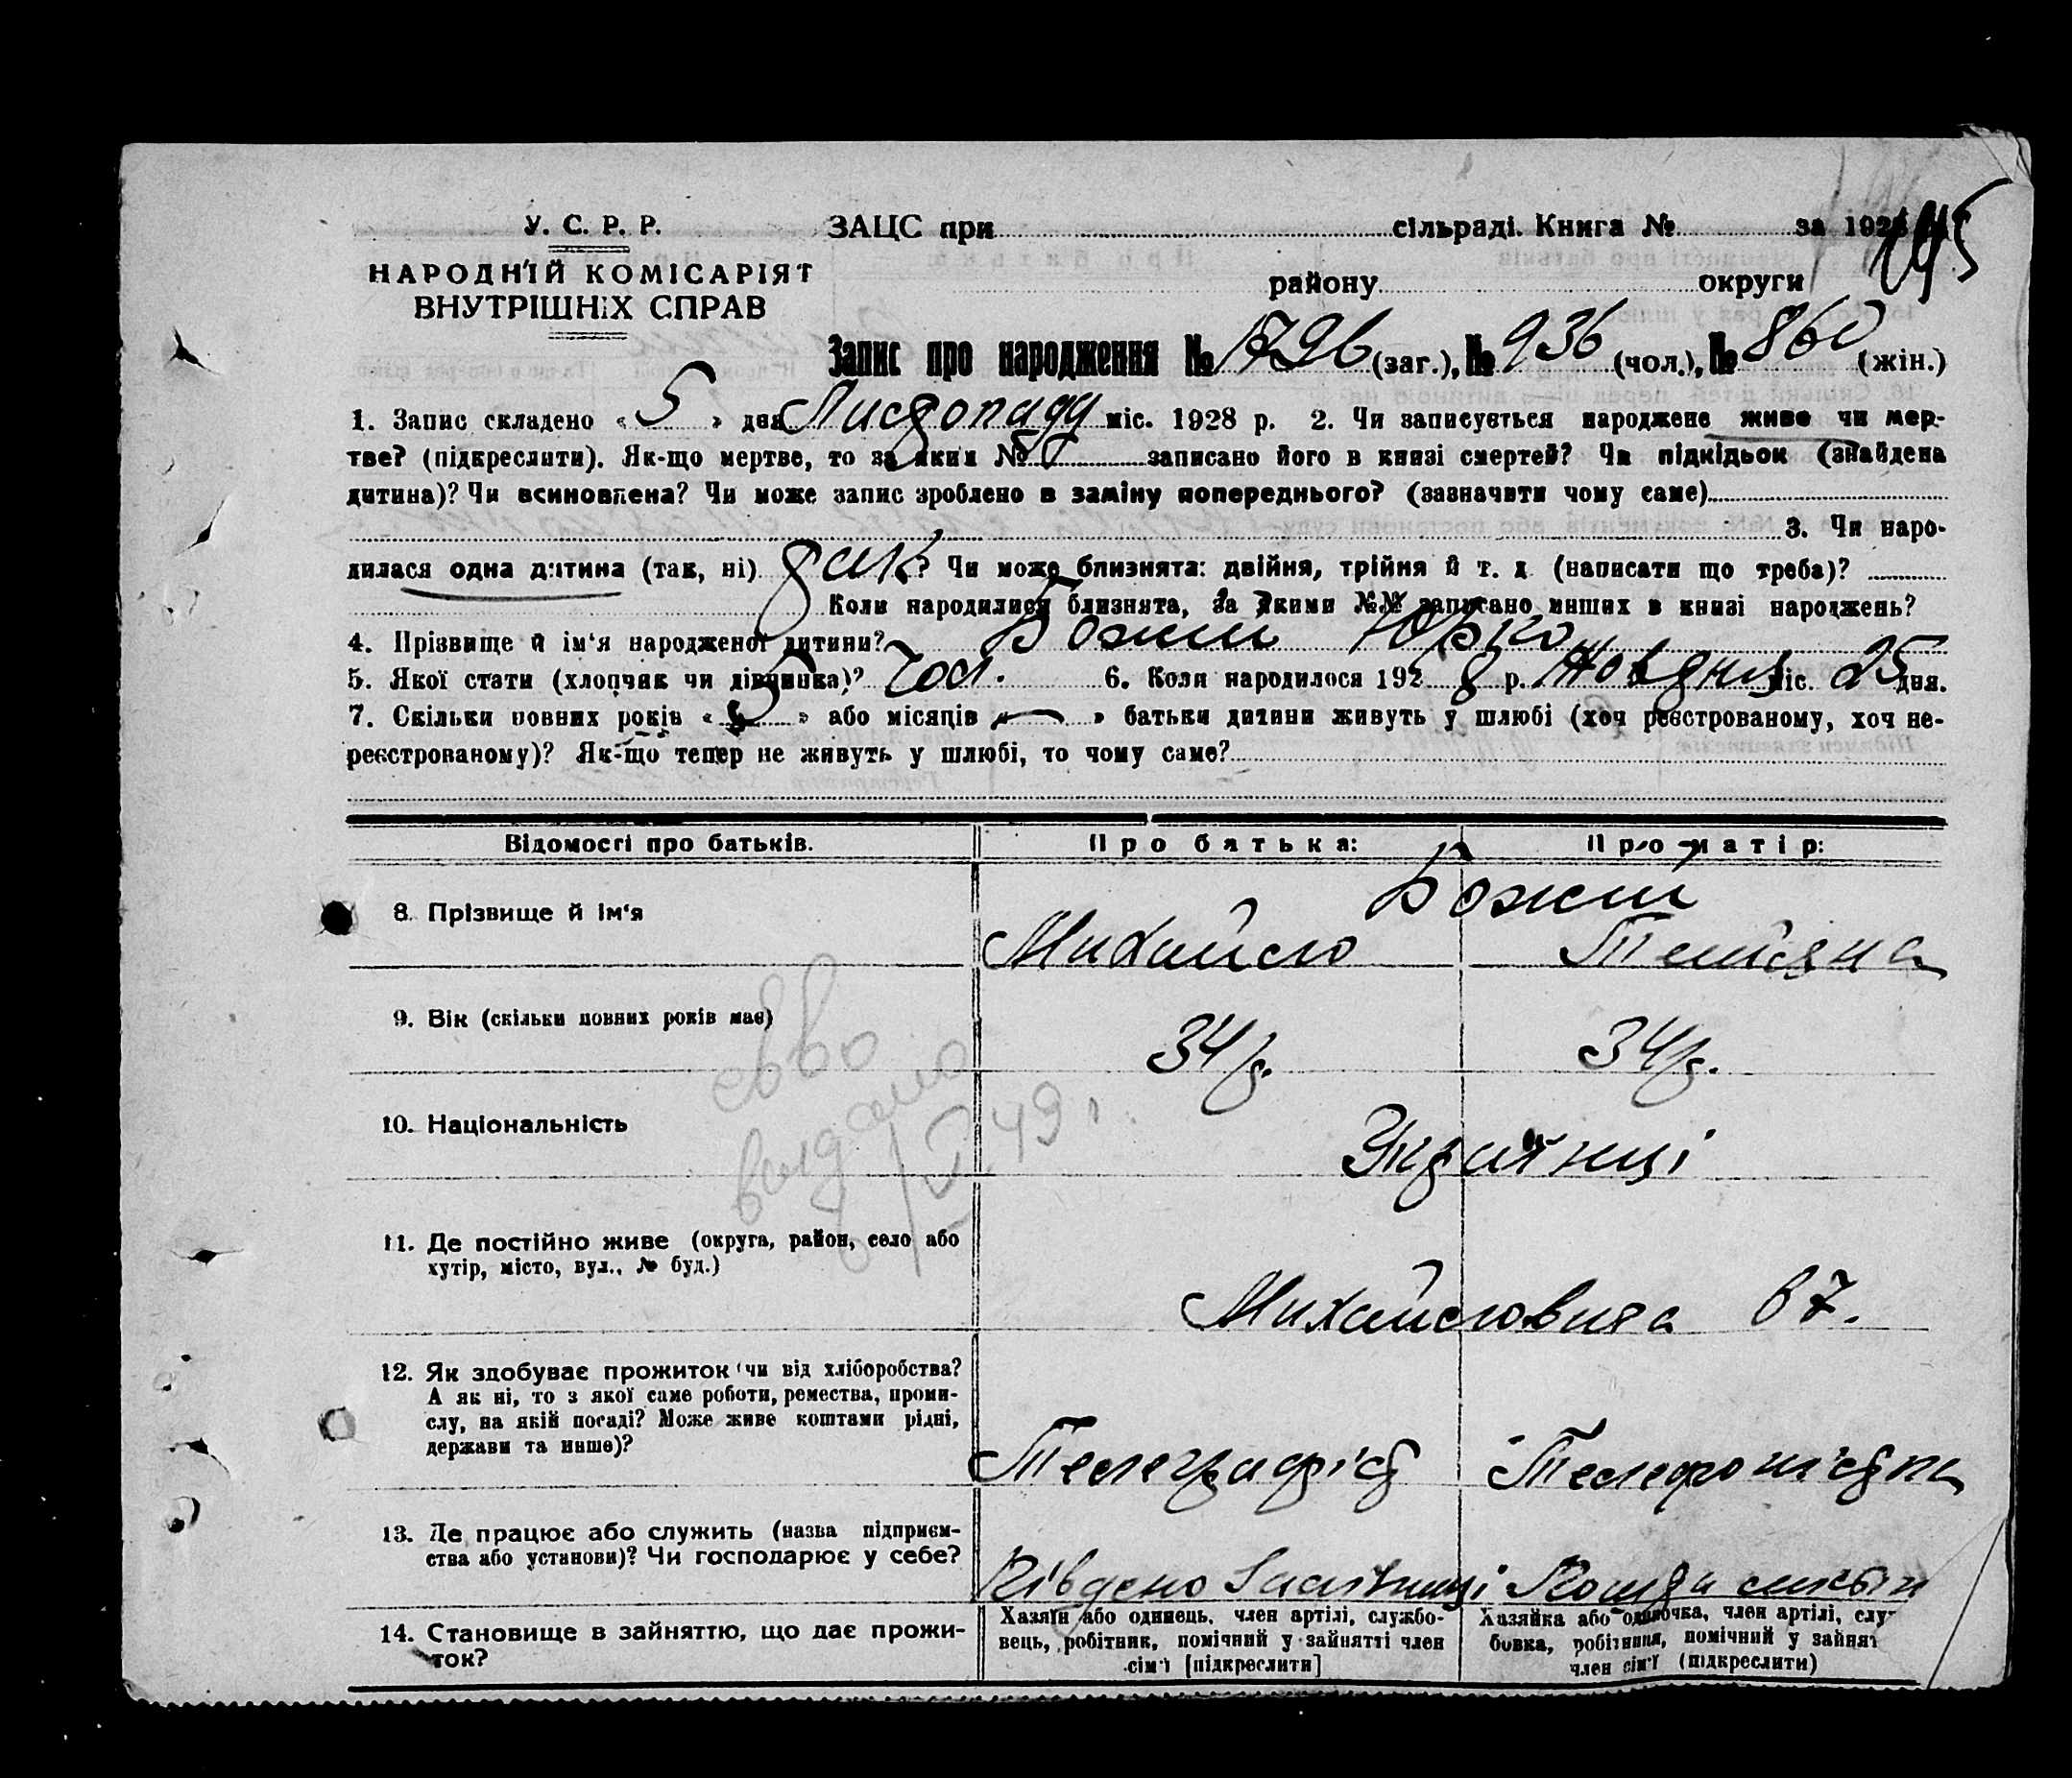 У. С. Р. Р.
НАРОДНІЙ КОМІСАРІЯТ
ВНУТРІШНІХ СПРАВ
ЗАЦС при сільраді. Книга № за 1928
району округи
195
Запис про народження № 1796 (заг.), № 936 (чол.), № 860 (жін.)
1. Запис складено « 5 » дня Листопаду міс. 1928 р. 2. Чи записується народжене живе чи мер-
тве? (підкреслити). Як-що мертве, то за яким № записано його в книзі смертей? Чи підкідьок (знайдена
дитина)? Чи всиновлена? Чи може запис зроблено в заміну попереднього? (зазначити чому саме)
3. Чи наро-
дилася одна дитина (так, ні) так? Чи може близнята: двійня, трійня й т. д (написати що треба)?
Коли народилися близнята, за якими №№ записано инших в книзі народжень?
4. Прізвище й ім'я народженої дитини? Божий Юрко
5. Якої стати (хлопчик чи дівчинка)? Чол. 6. Коли народилося 1928 р. Жовтня міс. 25 дня.
7. Скільки повних років « 5 » або місяців « — » батьки дитини живуть у шлюбі (хоч реєстрованому, хоч не-
реєстрованому)? Як-що тепер не живуть у шлюбі, то чому саме?
Відомості про батьків. Про батька: Про матір:
Божий
8. Прізвище й ім'я Михайло Тетяна
9. Вік (скільки повних років має) 34 р. 34 р.
10. Національність Українці
видано
49 г.
11. Де постійно живе (округа, район, село або
хутір, місто, вул., № буд.)
Михайловська 67.
12. Як здобуває прожиток (чи від хліборобства?
А як ні, то з якої саме роботи, ремества, проми-
слу, на якій посаді? Може живе коштами рідні,
держави та инше)?
Телеграфіст Телефоністка
13. Де працює або служить (назва підприєм-
ства або установи)? Чи господарює у себе?
14. Становище в зайняттю, що дає прожи-
ток?
Хазяїн або одинець, член артілі, службо-
вець, робітник, помічний у зайнятті член
сім'ї [підкреслити]
Хазяйка або одиночка, член артілі, слу
бовка, робітниця, помічний у зайнят
член сім'ї (підкреслити)